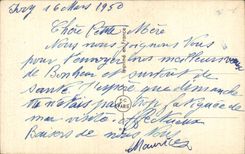 Ivry 16 Mars 1950
Chère Petite Mère
Nous nous joignons tous
pour t'envoyer nos meilleurs vœux
de Bonheur et surtout de
Santé J'espère que dimanche
tu n'étais pas trop fatiguée
de ma visite. affectueux
Baisers de nous tous
Maurice